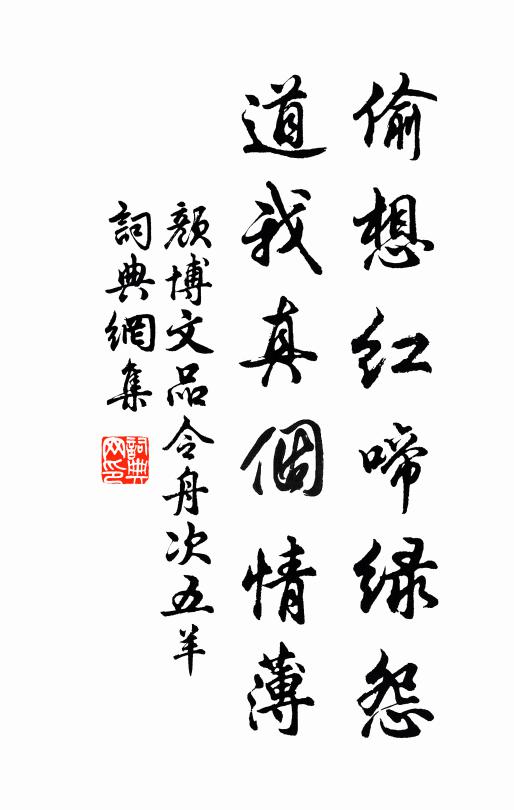 偷想紅啼綠怨
道我真個情薄
顏博文品令舟次五羊
詞典網集
詞典網印